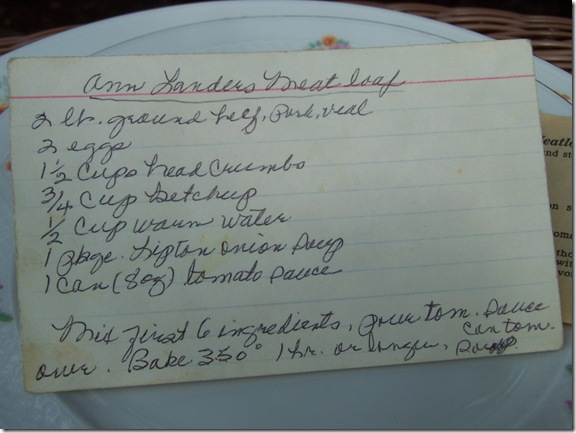 Ann Landers Meat loaf
2 lb. ground beef, Pork, veal
2 eggs
1 1/2 Cups bread Crumbs
3/4 Cup ketchup
1/2 Cup warm water
1 pkge. Lipton Onion Soup
1 Can (8 oz) tomato sauce
Mix first 6 ingredients, pour tom. sauce
over. Bake 350° 1 hr. or longer,
can tom.